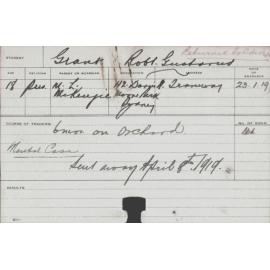 STUDENT
Grant Robt. Gustavus
Returned Soldier
AGE RELIGION PARENT OR GUARDIAN ADDRESS DATE
18 Pres. M. L. McKenzie Tramway Moore Park Sydney 23-1-19
COURSE OF TRAINING
6 mos on Orchard
Mental Case
Sent away April 8th 1919.
RESULTS